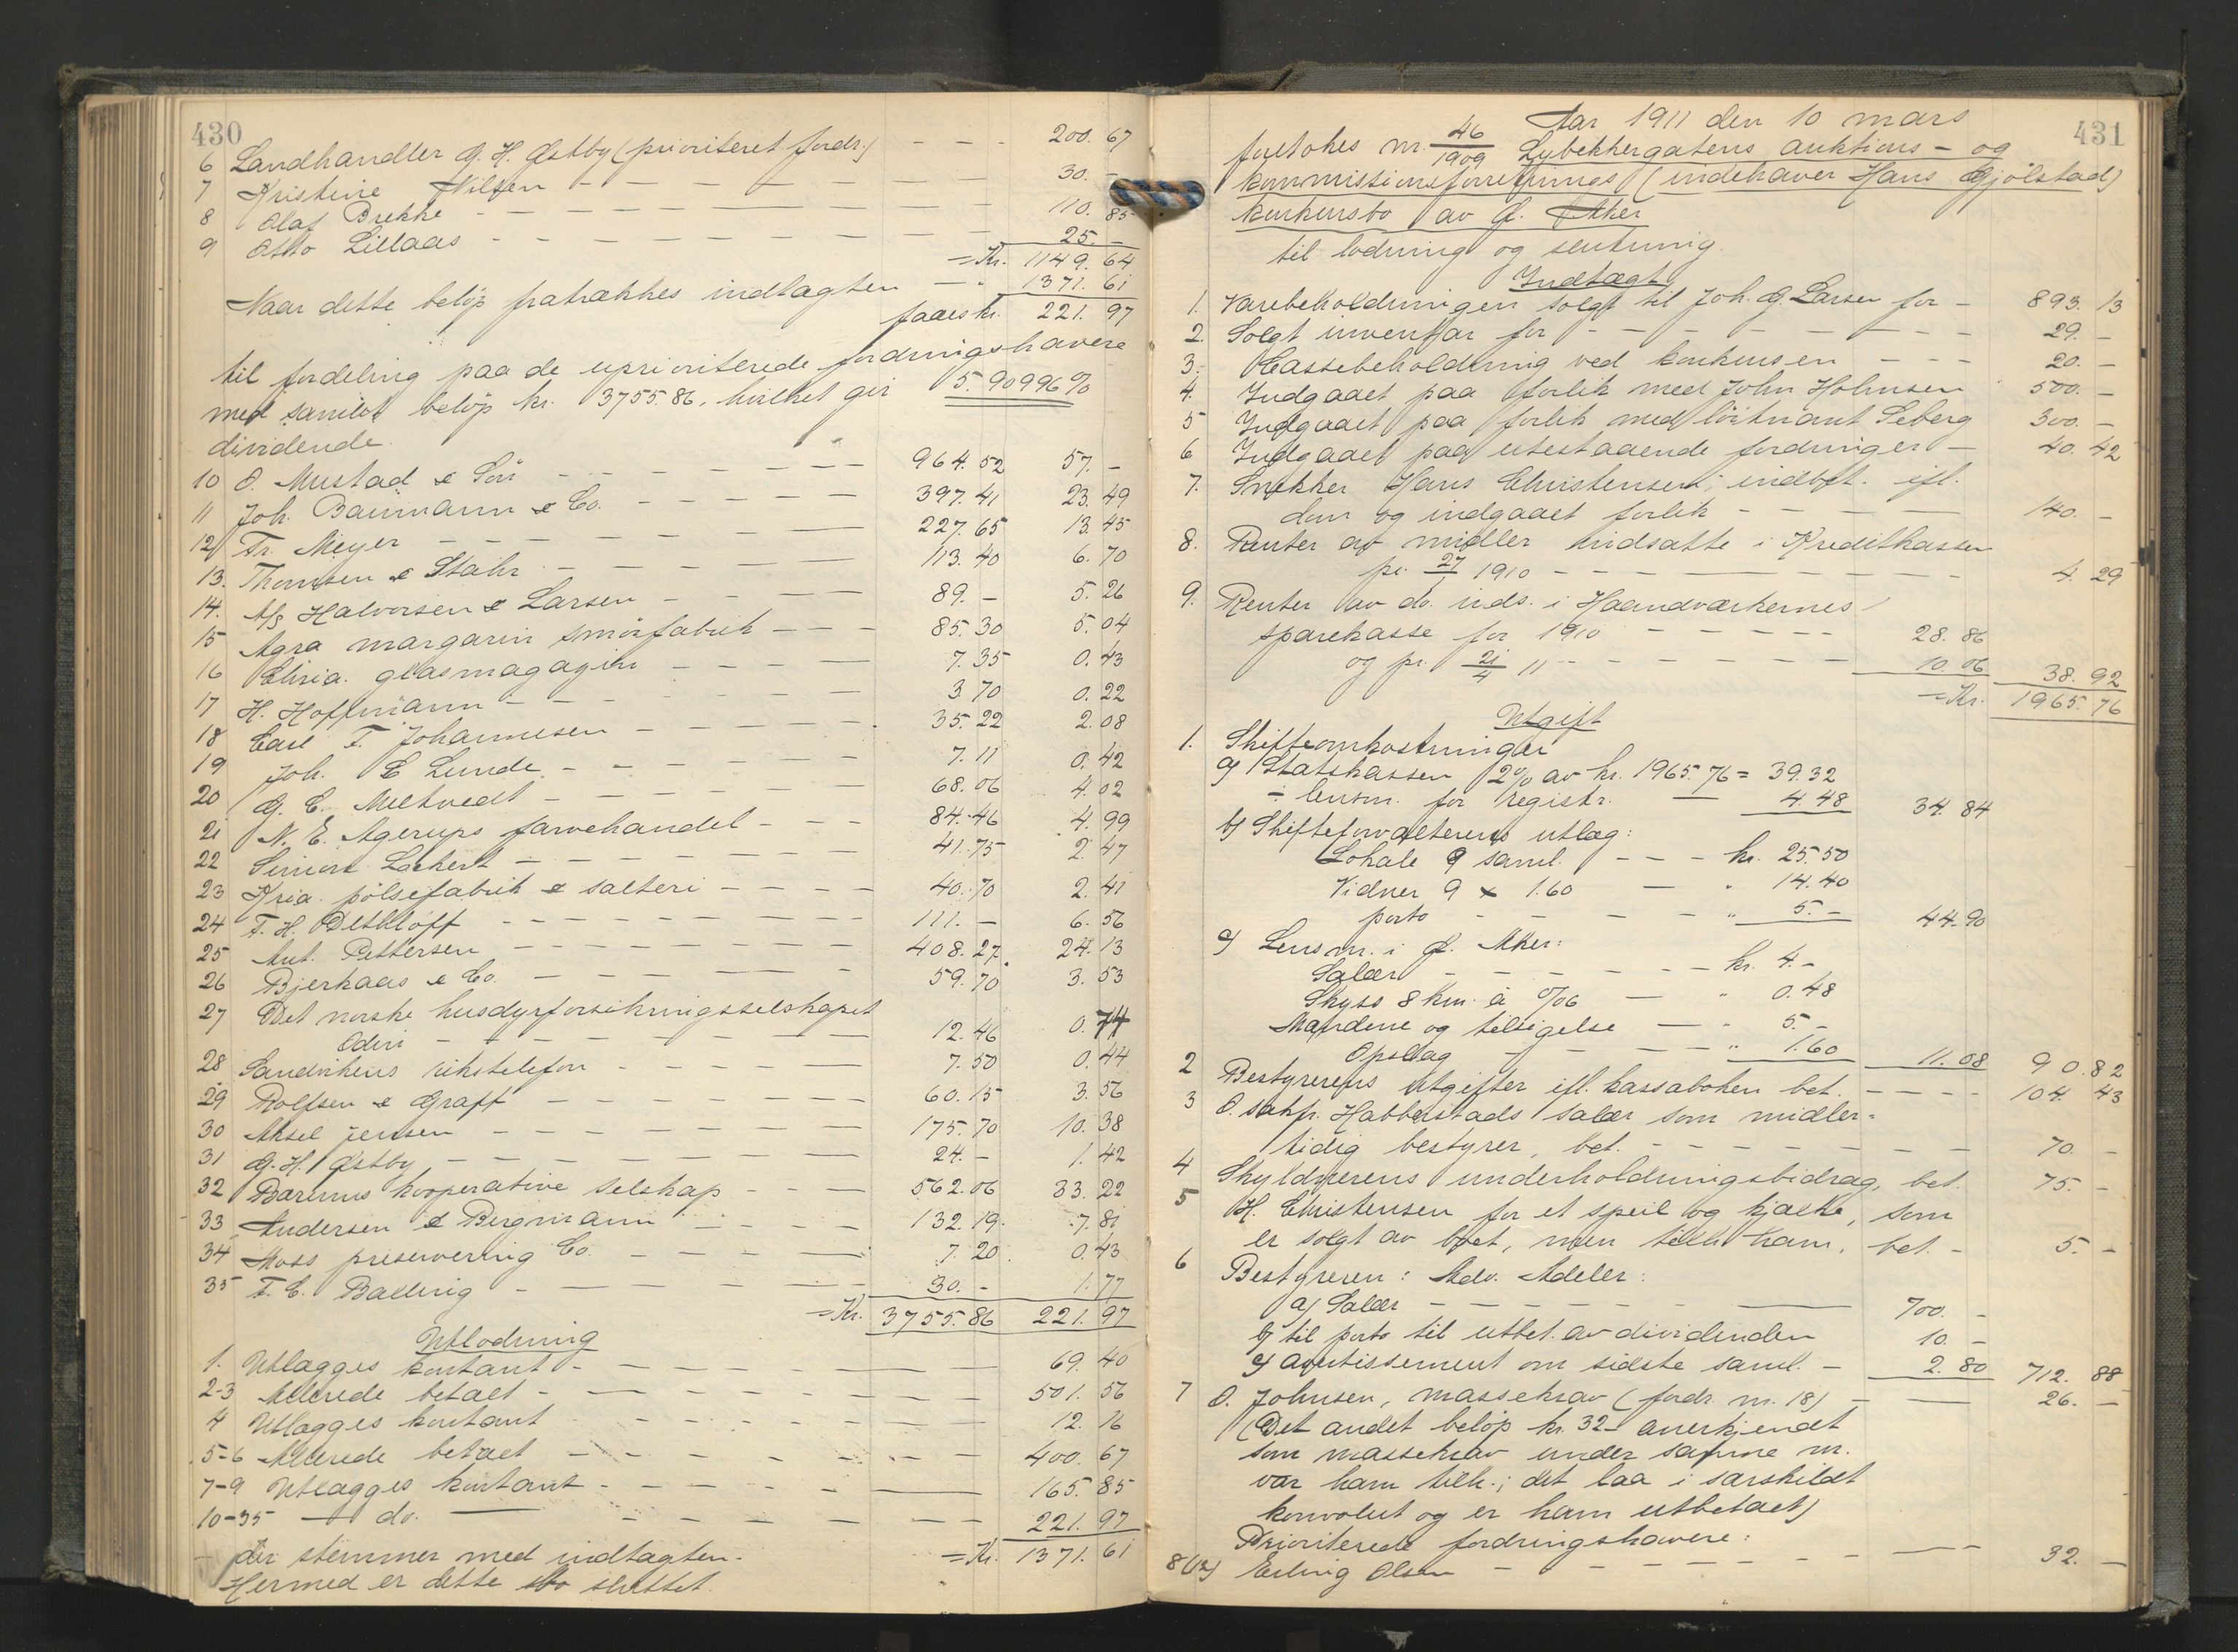 430
6 Landhandler G. H. Østby (prioriteret fordr.) - - - 200. 67
7 Kristine Nilsen - - - - - - 30. -
8 Olaf Brekke - - - - - - 110. 85
9 Otto Lillaas - - - - - - 25. -
= Kr. 1149. 64
Naar dette beløp fratrækkes indtægten - " 1371. 61
faaes kr. 221. 97
til fordeling paa de uprioriterede fordringshavere
med samlet beløp kr. 3755.86, hvilket gir 5.90996 %
dividende.
10 O. Mustad & Søn - - - - - 964. 52 57. -
11 Joh. Baumann & Co. - - - - 397. 41 23. 49
12 Fr. Meyer - - - - - 227. 65 13. 45
13. Thomsen & Stähr - - - - 113. 40 6. 70
14. A/s Halvorsen & Larsen - - - - 89. - 5. 26
15 Agra margarin smørfabrik - - - 85. 30 5. 04
16 Chria. glasmagagin - - - - 7. 35 0. 43
17 H. Hoffmann - - - - 3 70 0. 22
18 Carl F. Johannesen - - - - 35. 22 2. 08
19 Joh. E Lunde - - - - - 7. 11 0. 42
20 G. C. Meltvedt - - - - - 68. 06 4. 02
21 N. E. Agerups farvehandel - - - 84. 46 4. 99
22 Simon Lackert - - - - - 41. 75 2. 47
23 Kria. pølsefabrik & salteri - - - - 40. 70 2. 41
24 F. H. Dethloff - - - - - 111. - 6. 56
25 Ant. Pettersen - - - - - 408. 27. 24. 13
26 Bjerkaas & Co. - - - - - 59. 70 3. 53
27 Det norske husdyrforsikringsselskapet
Odin - - - - - 12. 46 0. 74
28 Sandvikens rikstelefon - - - - 7. 50 0. 44
29 Rolfsen & Graff - - - - - 60. 15 3. 56
30 Aksel Jensen - - - - - 175. 70 10. 38
31 G. H. Østby - - - - - 24. - 1. 42
32 Bærums kooperative selskap - - - 562. 06 33. 22
33 Andersen & Bergmann - - - - 132. 19. 7. 81
34 Moss preservering Co. - - - - 7. 20. 0. 43
35 F. C. Balling - - - - 30. - 1. 77
= Kr. 3755. 86 221. 97
Utlodning
1. Utlægges kontant - - - - 69. 40
2-3 Allerede betalt - - - - 501. 56
4 Utlægges kontant - - - - 12. 16
5-6 Allerede betalt - - - - 400. 67
7-9 Utlægges kontant - - - - 165. 85
10-35 — do. — - - - - 221. 97
der stemmer med indtægten. = Kr. 1371. 61
Hermed er dette bo sluttet.
431
Aar 1911 den 10 mars
foretokes nr. 46/1909 Lybekkergatens auktions- og
kommissionsforretnings (indehaver Hans Gjølstad)
konkursbo av Ø. Aker
til lodning og slutning.
Indtægt
1. Varebeholdningen solgt til Joh. G. Larsen for - 893. 13
2. Solgt inventar for - - - - - 29. -
3. Cassebeholdning ved konkursen - - - 20. -
4. Indgaaet paa forlik med John Holmsen 500. -
5 Indgaaet paa forlik med løitnant Seberg 300. -
6 Indgaaet paa utestaaende fordringer - 40. 42
7. Snekker Hans Christensen; indbt. ifl.
dom og indgaaet forlik - - - - 140. -
8. Renter av midler indsatte i Kreditkassen
pr. 27/1 1910 - - - - 4. 29
9. Renter av do. inds. i Haandværkernes
sparekasse for 1910 - - - - - 28. 86
og pr. 21/4 11 - - - - - 10. 06 38. 92
= Kr. 1965. 76
Utgift
1. Skifteomkostninger
a) Statskassen 2% av kr. 1965.76 = 39.32
÷ lensm. for registr. — 4.48 34. 84
b) Skifteforvalterens utlæg:
Lokale 9 saml. - - - kr. 25.50
Vidner 9 x 1.60 — " 14.40
porto - - - - " 5.- 44.90
c) Lensm. i Ø. Aker:
Salær - - - - kr. 4.-
Skyss 8 km. à 0/06 — " 0.48
Mændene og tilsigelse — " 5.-
Opslag - - - " 1.60 11.08 90.82
2 Bestyrerens utgifter ifl. kassaboken bet. - - - - 104. 43
3 O. sakf. Habberstads salær som midler-
tidig bestyrer, bet. - - - - - 70. -
4 Skyldnerens underholdningsbidrag, bet. 75. -
5 H. Christensen for et speil og kjælke, som
er solgt av boet, men tilh. ham, bet. - 5. -
6 Bestyreren: Adv. Adeler:
a) Salær - - - - 700. -
b) til porto til utbet. av dividenden 10 -
c) avertissement om sidste saml. - 2. 80 712. 88
7 O. Johnsen, massekrav (fordr. nr. 18) - — 26. -
(Det andet beløp kr. 32- anerkjendt
som massekrav under samme nr.
var ham tilh.; det laa i særskildt
konvolut og er ham utbetalt)
Prioriterede fordringshavere:
8 (12) Erling Olsen - - - - - 32. -